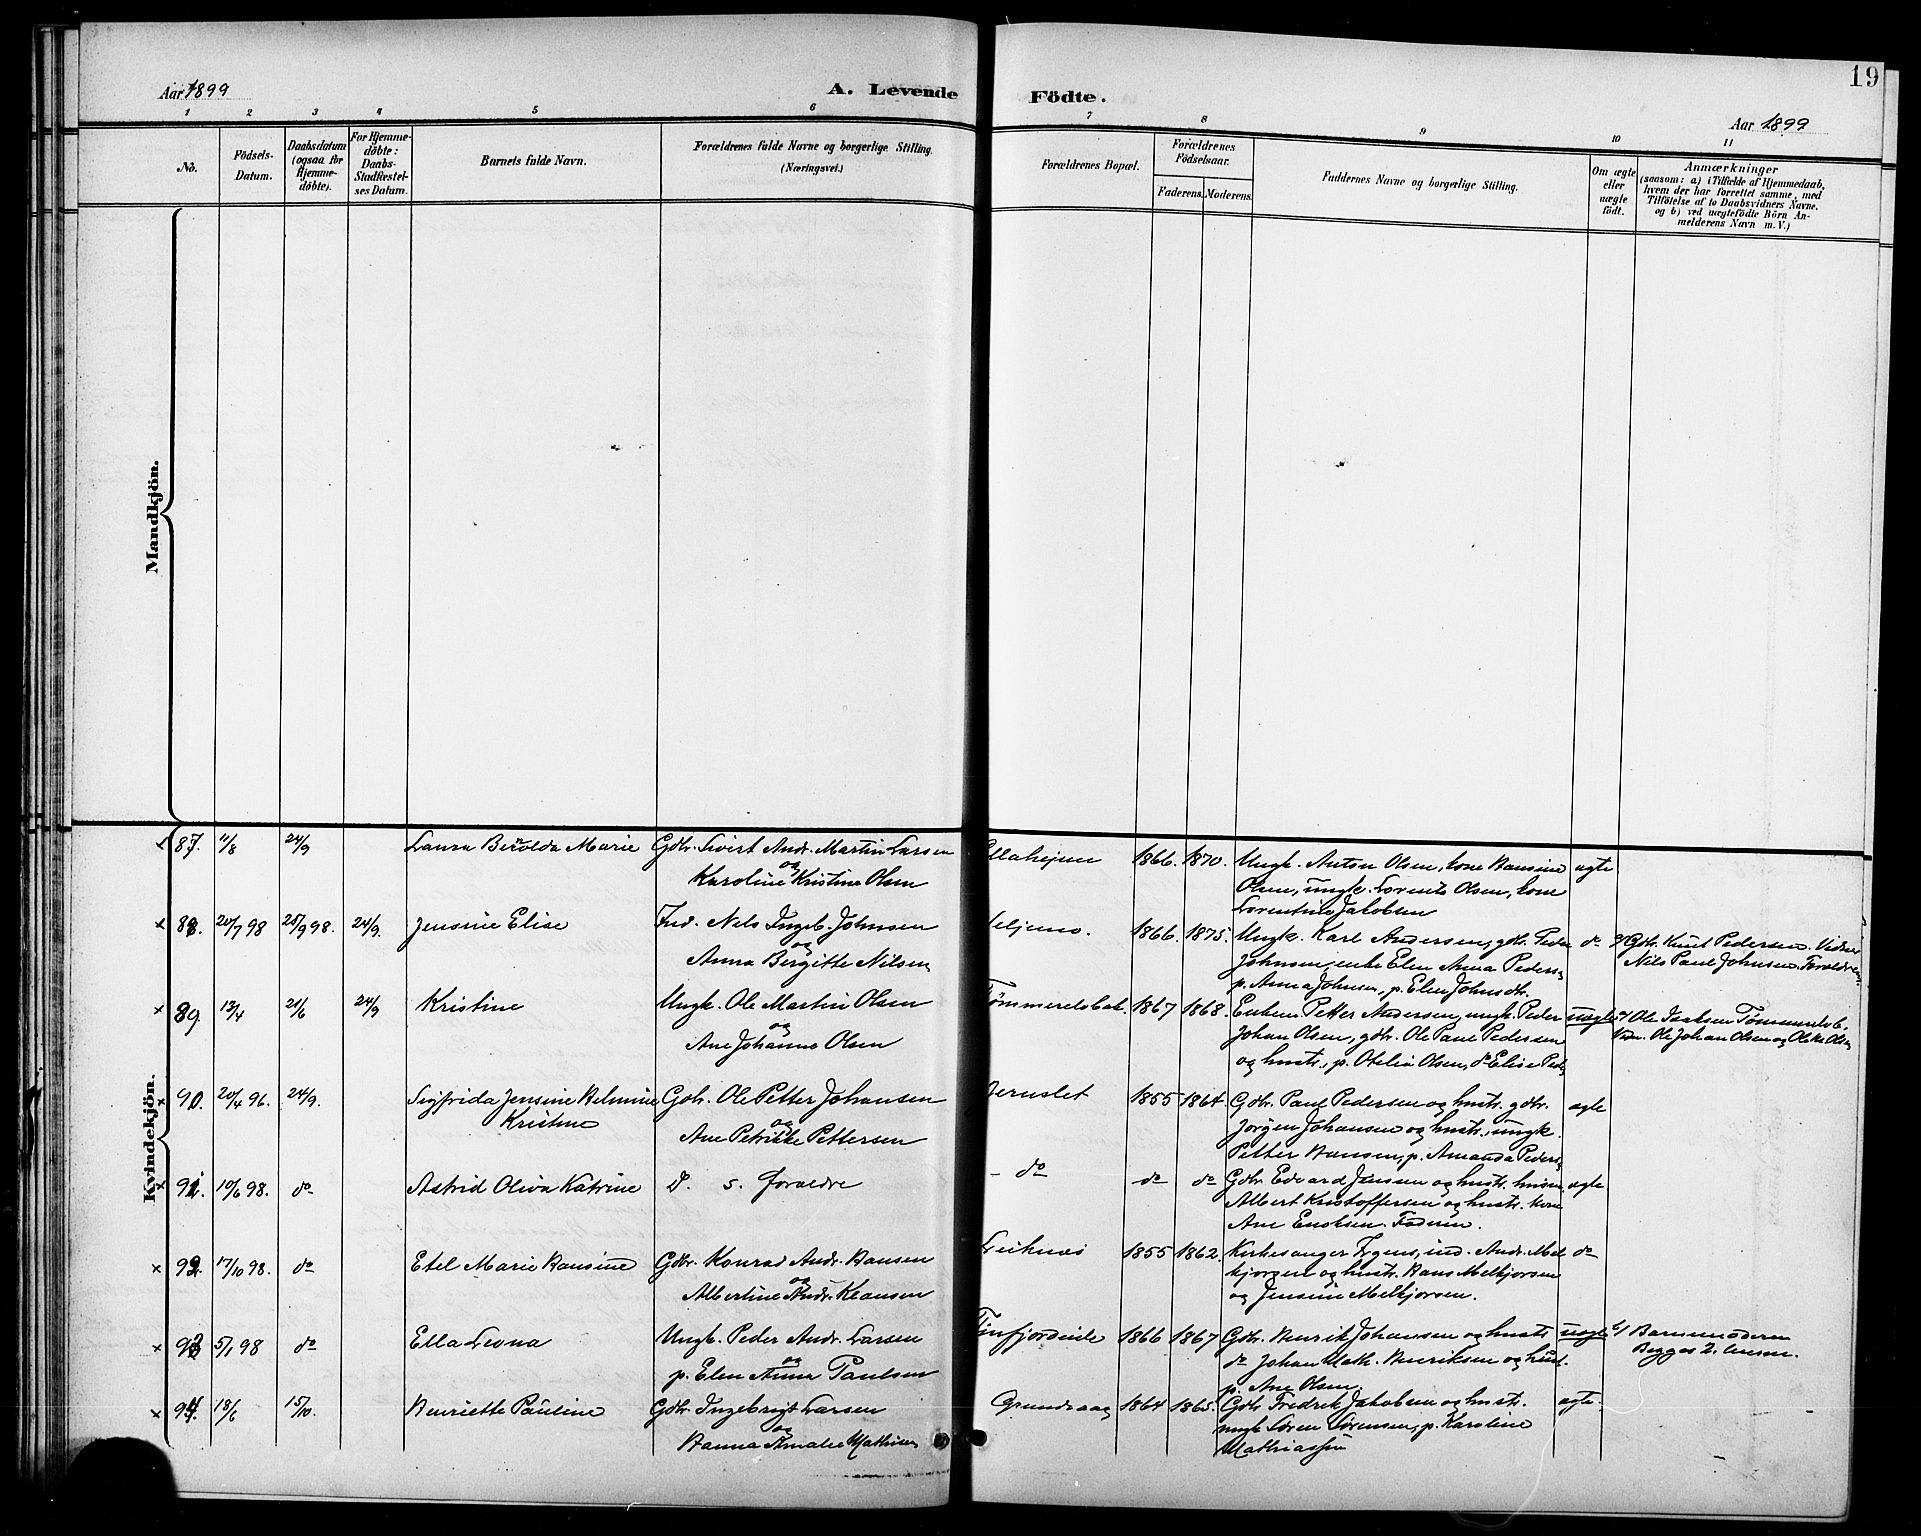 19
Aar 1899
A. Levende Födte.
Aar 1899
1 2 3 4 5 6 7 8 9 10 11
No.
Födsels-
Datum.
Daabsdatum
(ogsaa for
Hjemme-
döbte).
For Hjemme-
döbte:
Daabs-
Stadfæstel-
ses Datum.
Barnets fulde Navn.
Forældrenes fulde Navne og borgerlige Stilling.
(Næringsvei.)
Forældrenes Bopæl.
Forældrenes
Födselsaar.
Faderens. Moderens.
Faddernes Navne og borgerlige Stilling.
Om ægte
eller
uægte
födt.
Anmærkninger
(saasom: a) i Tilfælde af Hjemmedaab,
hvem der har forrettet samme, med
Tilföielse af to Daabsvidners Navne.
og b) ved uægtefödte Börn An-
melderens Navn m.V.)
Mandkjön.
Kvindekjön.
87. 11/8 24/9 Laura Marie Gdbr. Sivert Andr. Martin Larsen 1866. 1870. Ungk. Anton Olsen, kone Hansine ægte
og
Karoline Kristine Olsen
Olsen, ungk. Lorents Olsen, kone
Lorentine Jakobsen
88. 20/7 98 25/9 98. 24/9. Jensine Elise Ind. Nils Ingeb. Johnsen 1866. 1875. Ungk. Karl Andersen, gdbr. Peder do Gdbr. Knut Pedersen. Vidner
og
Anna Bergitte Nilsen
Johnsen, enke Elen Anna Peders.
Nils Paul Johnsen, Forældrene
p. Anna Johnsen, p. Elen Johnsdtr.
89. 13/4 21/6 24/9 Kristine Ungk. Ole Martin Olsen 1867 1868. Enkem. Petter Andersen, ungk. Peder uægte Ole Isaksen
og
Ane Johanna Olsen
Johan Olsen, gdbr. Ole Paul Pedersen
Vidn. Ole Johan Olsen og
og hustr., p. Otelia Olsen, do Elise Peds
90. 20/4 96. 24/9. Sigfrida Jensine Gdbr. Ole Petter Johansen 1855 1864 Gdbr. Paul Pedersen og hustr. gdbr. ægte
Kristine
og
Ane Petrikke Pettersen
Jørgen Johansen og hustr., ungk.
Petter Hansen, p. Amanda Peders.
91. 10/6 98. do Astrid Oliva Katrine D. s. forældre do do do Gdbr. Edvard Jensen og hustr. ægte
Albert Kristoffersen og hustr. kone
Ane Enoksen. Faderen.
92. 17/10 98. do Etel Marie Hansine Gdbr. Konrad Andr. Hansen 1855 1862. Kirkesanger ind. Andr. Mel do
og
Albertine Andr. Klausen
kjorsen og hustr. Hans Melkjorsen
og Jensine Melkjorsen.
93 5/1 98 do Ella Leona Ungk. Peder Andr. Larsen 1866 1867 Gdbr. Henrik Johansen og hustr. uægte Barnemoderen
og
p. Elen Anna Paulsen
do Johan Math. Henriksen og hust.
Begges 2.
p. Ane Olsen
94. 18/6 15/10. Henriette Pauline Gdbr. Ingebrigt Larsen 1864 1865. Gdbr. Fredrik Jakobsen og hustr. ægte.
og
Hanna Amalie
ungk. Søren Sørensen, p. Karoline
Mathiassen